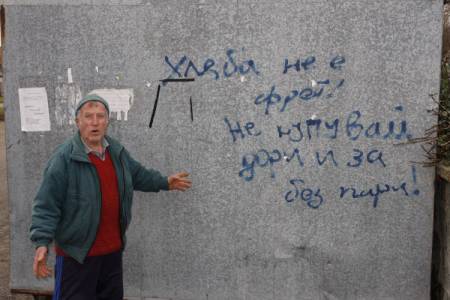 Хляба не е
фреш!
Не купувай
дори и за
без пари!